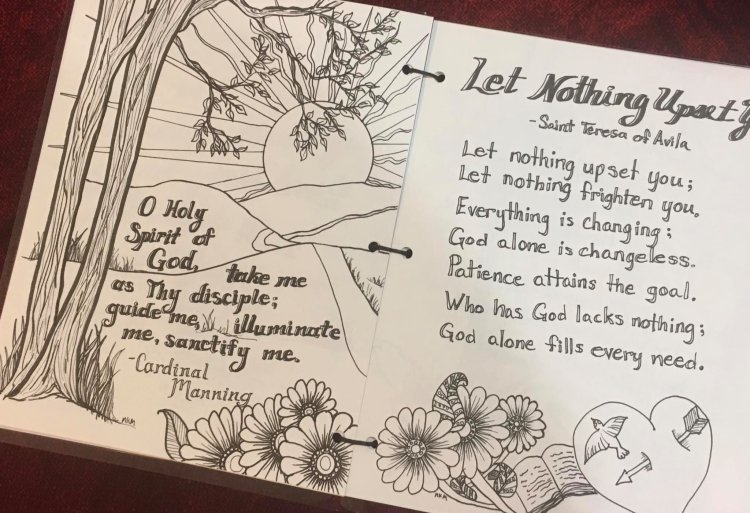 O Holy
Spirit of
God, take me
as Thy disciple;
guide me, illuminate
me, sanctify me.
-Cardinal
Manning
Let Nothing Upset
-Saint Teresa of Avila
Let nothing upset you;
Let nothing frighten you.
Everything is changing;
God alone is changeless.
Patience attains the goal.
Who has God lacks nothing;
God alone fills every need.